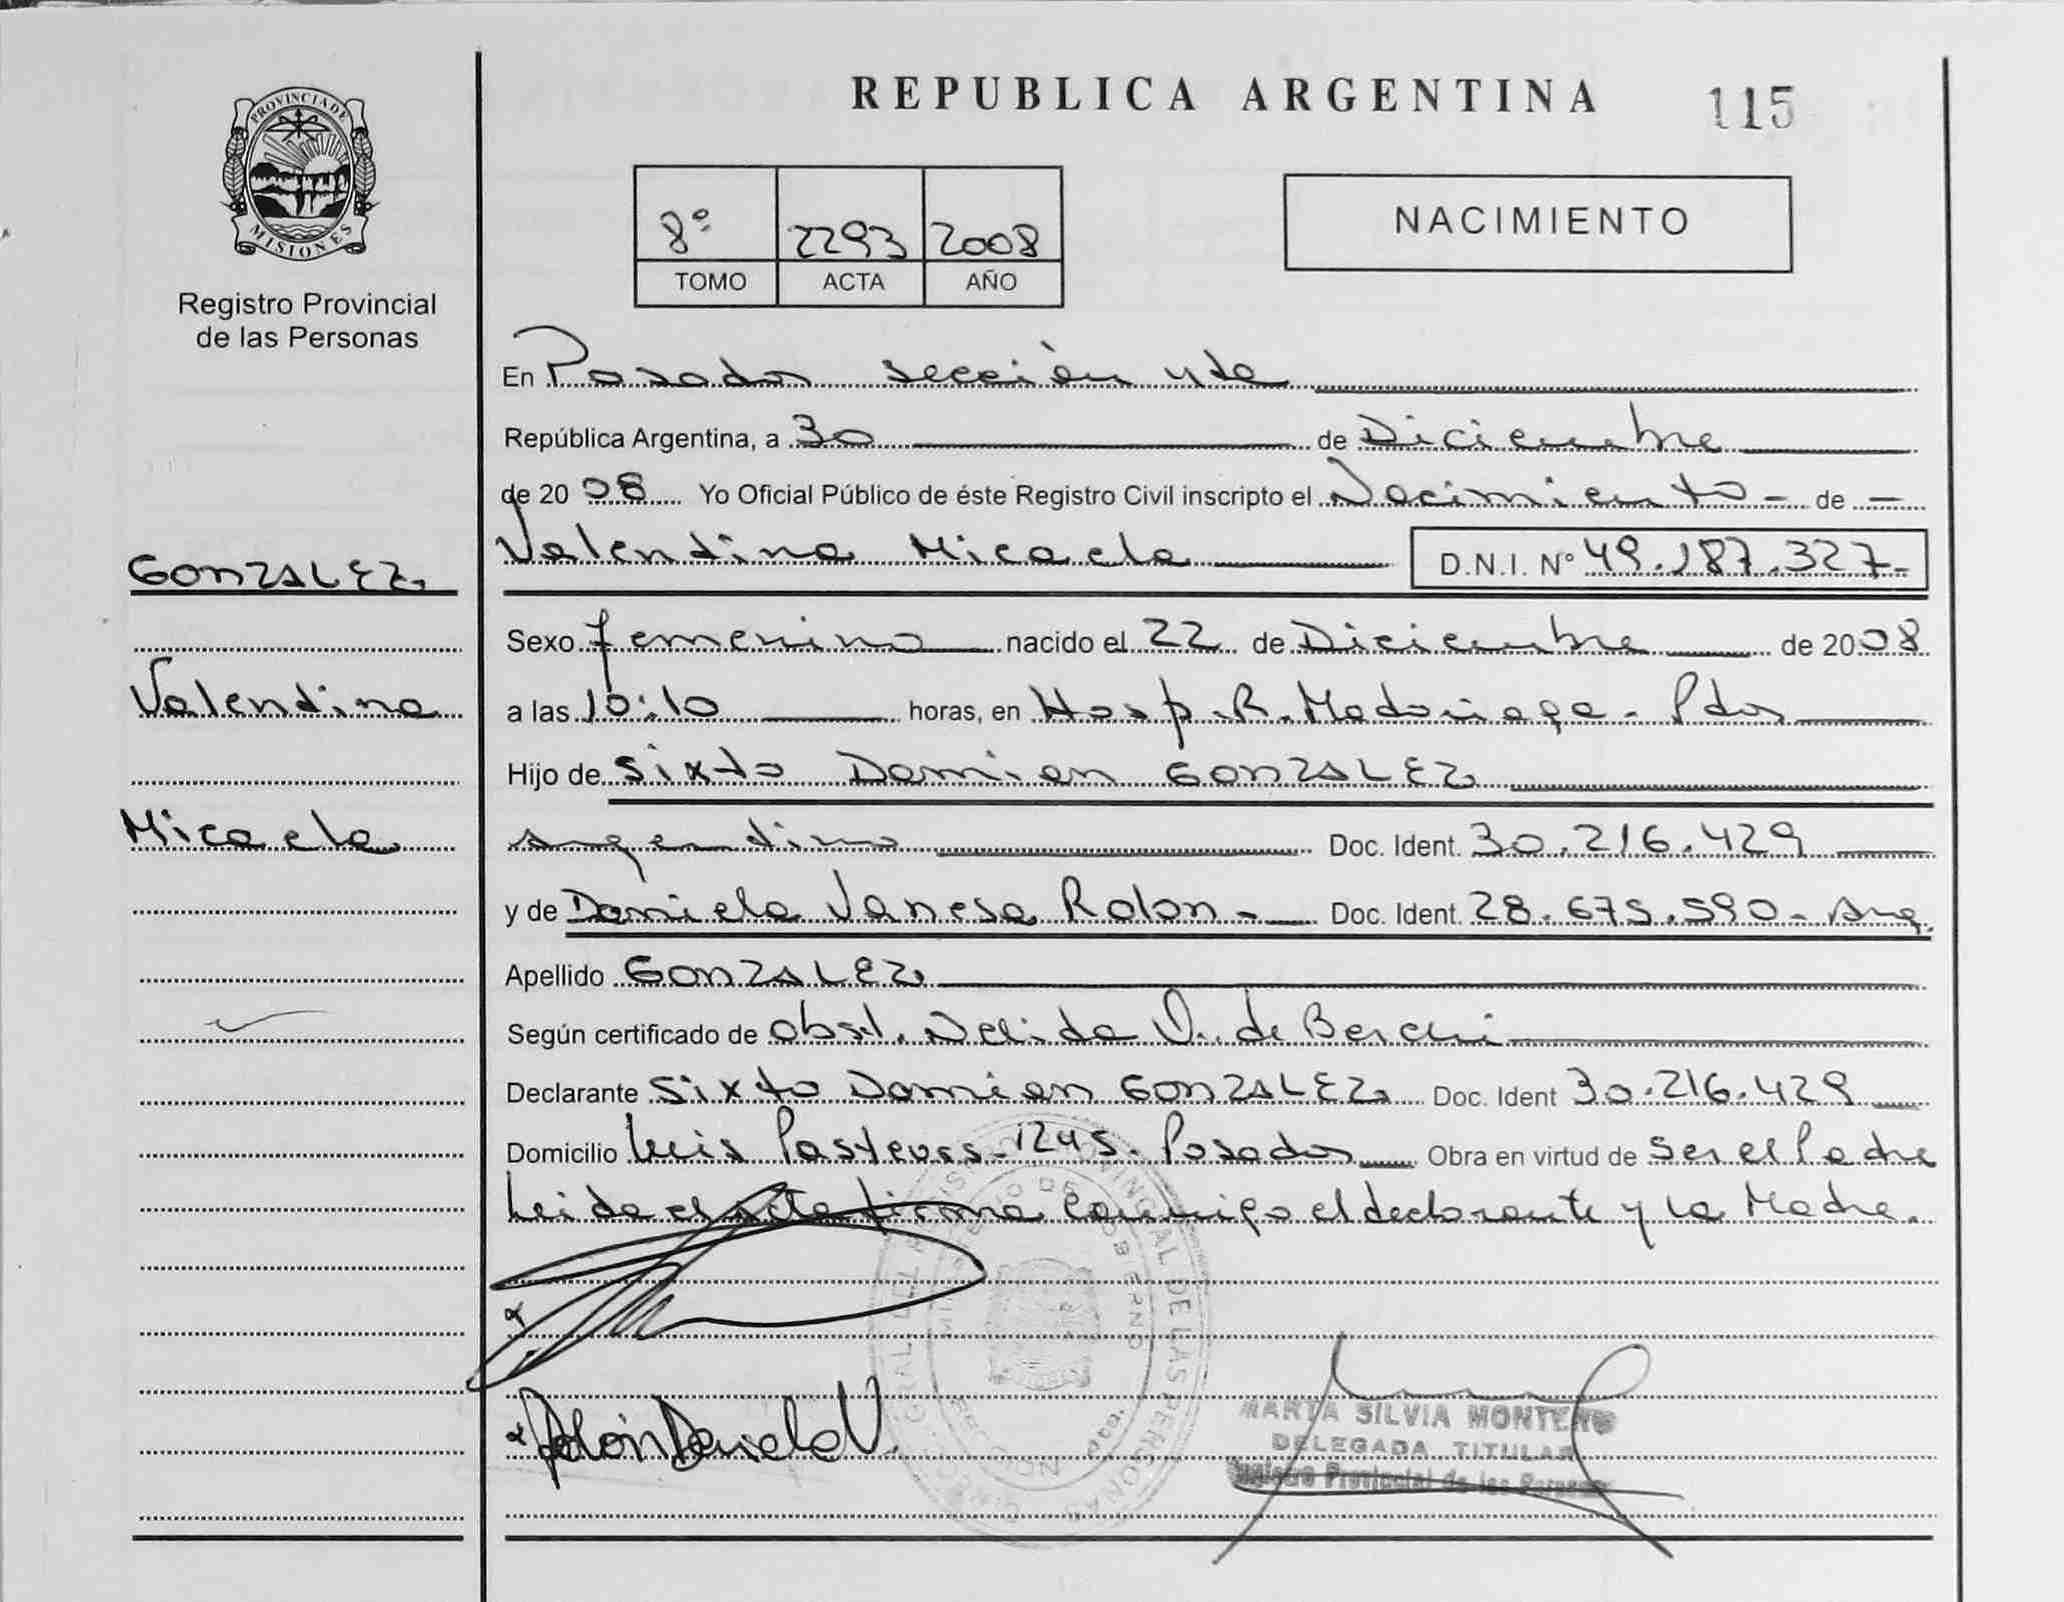 REPUBLICA ARGENTINA
115
PROVINCIA DE
MISIONES
Registro Provincial
de las Personas
8º 2293 2008
TOMO ACTA AÑO
NACIMIENTO
En Posadas sección 4ta
República Argentina, a 30 de Diciembre
de 2008 Yo Oficial Público de éste Registro Civil inscripto el Nacimiento - de -
GONZALEZ
Valentina Micaela D.N.I. Nº 49.187.327-
Sexo femenino nacido el 22 de Diciembre de 2008
Valentina
a las 10:10 horas, en Hosp. R. Madariaga - Pdas
Hijo de Sixto Damian GONZALEZ
Micaela
Argentino Doc. Ident. 30.216.429
y de Daniela Vanesa Rolon - Doc. Ident. 28.675.590 - Arg.
Apellido GONZALEZ
Según certificado de obst. Nelida V. de Berchi
Declarante Sixto Damian GONZALEZ Doc. Ident 30.216.429
Domicilio Luis Pasteurs - 1245 - Posadas Obra en virtud de Ser el Padre
Leida el acta firma conmigo el declarante y la Madre.
Rolón Daniela V.
MARTA SILVIA MONTERO
DELEGADA TITULAR
Registro Provincial de las Personas